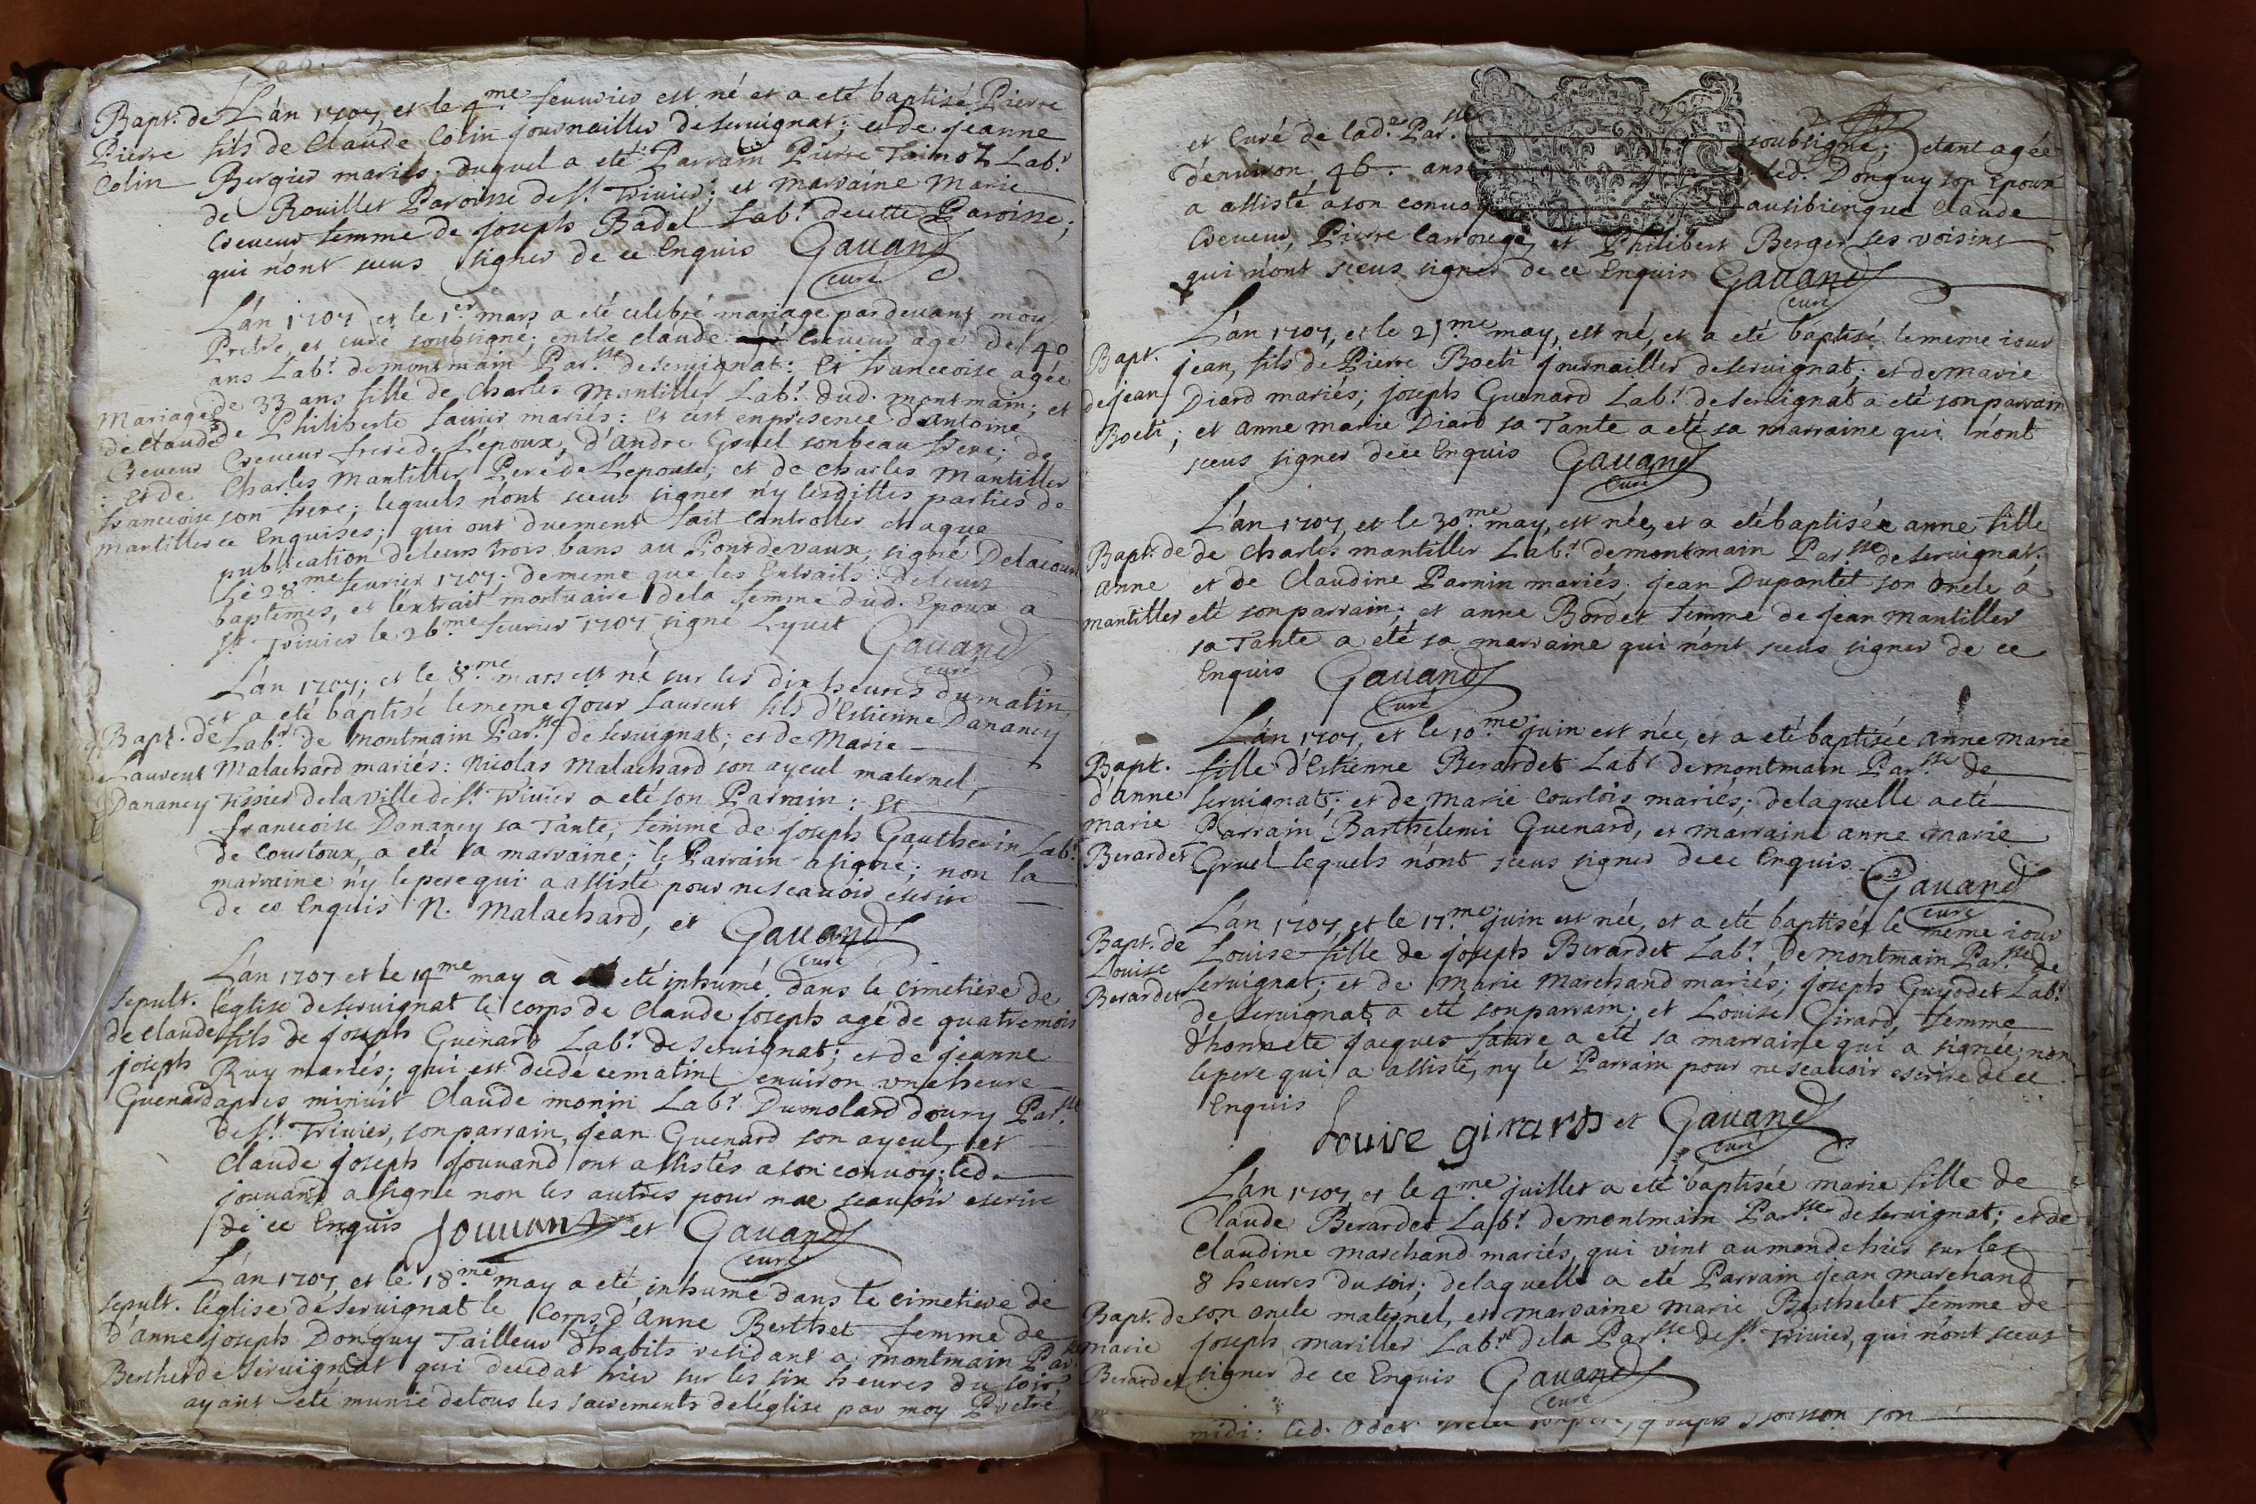 L'án 1707, et le 4.me feuurier est né et a eté baptisé Pierre
Bapt. de
Pierre
Colin
fils de Claude Colin journaillier de seruignat; et de jeanne
Bergier mariés; duquel a eté Parrain Pierre Taimoz Lab.r
de Rouilles Paroisse de s.t Triuier; et marraine Marie
Creueur femme de joseph Badel Lab.r decette Paroisse;
qui n'ont sceus signer de ce Enquis Gauand
curé
L'án 1707 et le 1.er mars a eté celebré mariage pardeuant moy
Prétre et curé soubsigné; entre claude Creueur agé de 40
ans Lab.r de montmain Par.sse de seruignat: Et francoise agée
Mariage
de claude
Creueur
: et de
francoise
mantiller
de 33 ans fille de Charles Mantiller Lab.r dud. montmain; et
de Philiberte mariés: Et c'est enpresence d'antoine
Creueur frere de L'epoux, d'andre Gruel sonbeau frere; de
Charles mantiller Pere de L'epouse; et de charles mantiller
son frere; lequels n'ont sceus signer n'y lesdittes parties de
ce Enquises; qui ont duement fait controller chaque
publication deleurs trois bans au Pontdevaux, signé: Delacour
Le 28.me feurier 1707; dememe que les Extraits deleurs
baptêmes, et l'extrait mortuaire dela femme dud. Epoux a
s.t Triuier le 26.me feurier 1707 signé Lyuet Gauand
curé
L'án 1707; et le 8.me mars est né sur les dix heures dumatin,
et a eté baptisé lememe jour Laurent fils d'Estienne Dananey
Bapt. de
Laurent
Dananey
Lab.r de montmain Par.sse de seruignat; et de Marie
Malachard mariés: Nicolas Malachard son ayeul maternel,
Tissier dela ville de s.t Triuier a eté son Parrain: Et
francoise Dananey sa Tante; femme de joseph Gautherin Lab.r
de Courtoux, a eté sa marraine; le Parrain a signé; non la
marraine n'y lepere qui a assisté pour ne scauoir escrire
de ce Enquis N. Malachard, et Gauand
curé
L'án 1707 et le 14.me may a eté inhumé dans le cimetiere de
sepult.
de claude
joseph
Guenard
l'église de seruignat le corps de Claude joseph agé de quatremois
fils de joseph Guenard Lab.r de seruignat; et de jeanne
Ruy mariés; qui est decede cematin enuiron vneheure
apres minuit Claude monin Lab.r Dumolard doury Par.sse
de s.t Triuier, sonparrain, jean Guenard son ayeul, et
Claude joseph jouuand ont assistés a son conuoy; led.
jouuand a signé non les autres pour ne scauoir escrire
de ce Enquis Jouuant et Gauand
curé
L'án 1707, et le 18.me may a eté inhumé dans le cimetiere de
sepult.
d'anne
Berthet
l'église de seruignat le Corps d'anne Berthet femme de
joseph Donguy Tailleur d'habits residant a montmain Par.sse
de Seruignat qui decedat hier sur les six heures du soir,
ayant eté munie detous les sacrements del'église par moy Prétre
et Curé de lad.e Par.sse soubsigné; etant agée
d'enuiron 46. ans led. Donguy son Epoux
a assisté a son conuoy ausibienque Claude
Creueur, Pierre Carrouge, et Philibert Berger ses voisins
qui n'ont sceus signer de ce Enquis Gauand
curé
L'án 1707, et le 25.me may, est né, et a eté baptisé lememe iour
Bapt.
de jean
Boeti
jean, fils de Pierre Boeti journaillier de seruignat; et demarie
Diard mariés; joseph Guenard Lab.r de seruignat a eté sonparrain
; et anne marie Diard sa Tante a eté sa marraine qui n'ont
sceus signer dece Enquis Gauand
Curé
L'án 1707, et le 30.me may, est née, et a eté baptisée anne fille
Bapt. de
anne
mantiller
de charles mantiller Lab.r demontmain Par.sse de seruignat;
et de Claudine Parnin mariés; jean Dupontet son oncle a
eté sonparrain; et anne Bordet femme de jean mantiller
sa Tante a eté sa marraine qui n'ont sceus signer de ce
Enquis Gauand
Curé
L'án 1707, et le 10.me juin est née, et a eté baptisée anne marie
Bapt.
d'anne
marie
Berardet
fille d'Estienne Berardet Lab.r demontmain Par.sse de
seruignat; et de marie Courtois mariés; delaquelle a eté
Parrain Barthelemi Guenard, et marraine anne marie
Gruel lequels n'ont sceus signer dece Enquis. Gauand
curé
L'án 1707, et le 17.me juin est née, et a eté baptisée le meme iour
Bapt. de
Louise
Berardet
Louise fille de joseph Berardet Lab.r de montmain Par.sse de
seruignat; et de Marie Marchand mariés; joseph Guyodet Lab.r
de seruignat a eté sonparrain; et Louise Girard, femme
d'honnete jacques faure a eté sa marraine qui a signée; non
lepere qui a assisté, ny le Parrain pour ne scauoir escrire de ce
Enquis
Louise girard et Gauand
Curé
L'án 1707 et le 4.me juillet a eté baptisée marie fille de
Claude Berardet Lab.r demontmain Par.sse de seruignat; et de
Claudine marchand mariés, qui vint aumonde hier sur les
8 heures du soir; delaquelle a eté Parrain jean marchand
Bapt. de
marie
Berardet
son oncle maternel, et marraine marie Berthelet femme de
joseph mariller Lab.r dela Par.sse de s.t Triuier, qui n'ont sceus
signer de ce Enquis Gauand
curé
midi: led. son